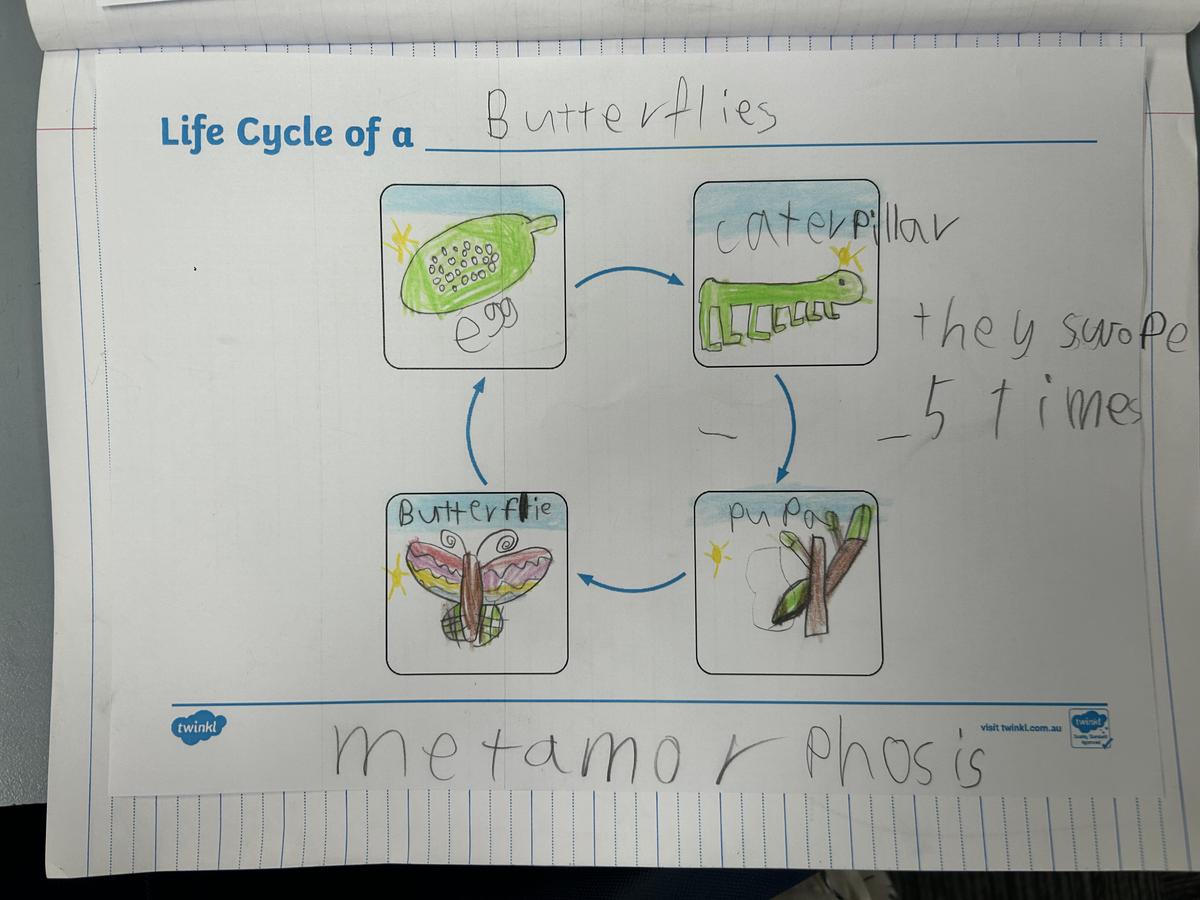 Life Cycle of a Butterflies
egg
caterpillar
they swope
5 times
Butterflie
pupa
twinkl
visit twinkl.com.au
twinkl
Quality Standard
Approved
metamorphosis